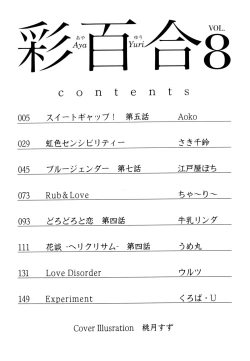 彩百合 VOL. 8
あや ゆり
Aya Yuri
contents
005 スイートギャップ! 第五話 Aoko
029 虹色センシビリティー さき千鈴
045 ブルージェンダー 第七話 江戸屋ぽち
073 Rub&Love ちゃ～り～
093 どろどろと恋 第四話 牛乳リンダ
111 花談 -ヘリクリサム- 第四話 うめ丸
131 Love Disorder ウルツ
149 Experiment くろば・U
Cover Illusration 桃月すず